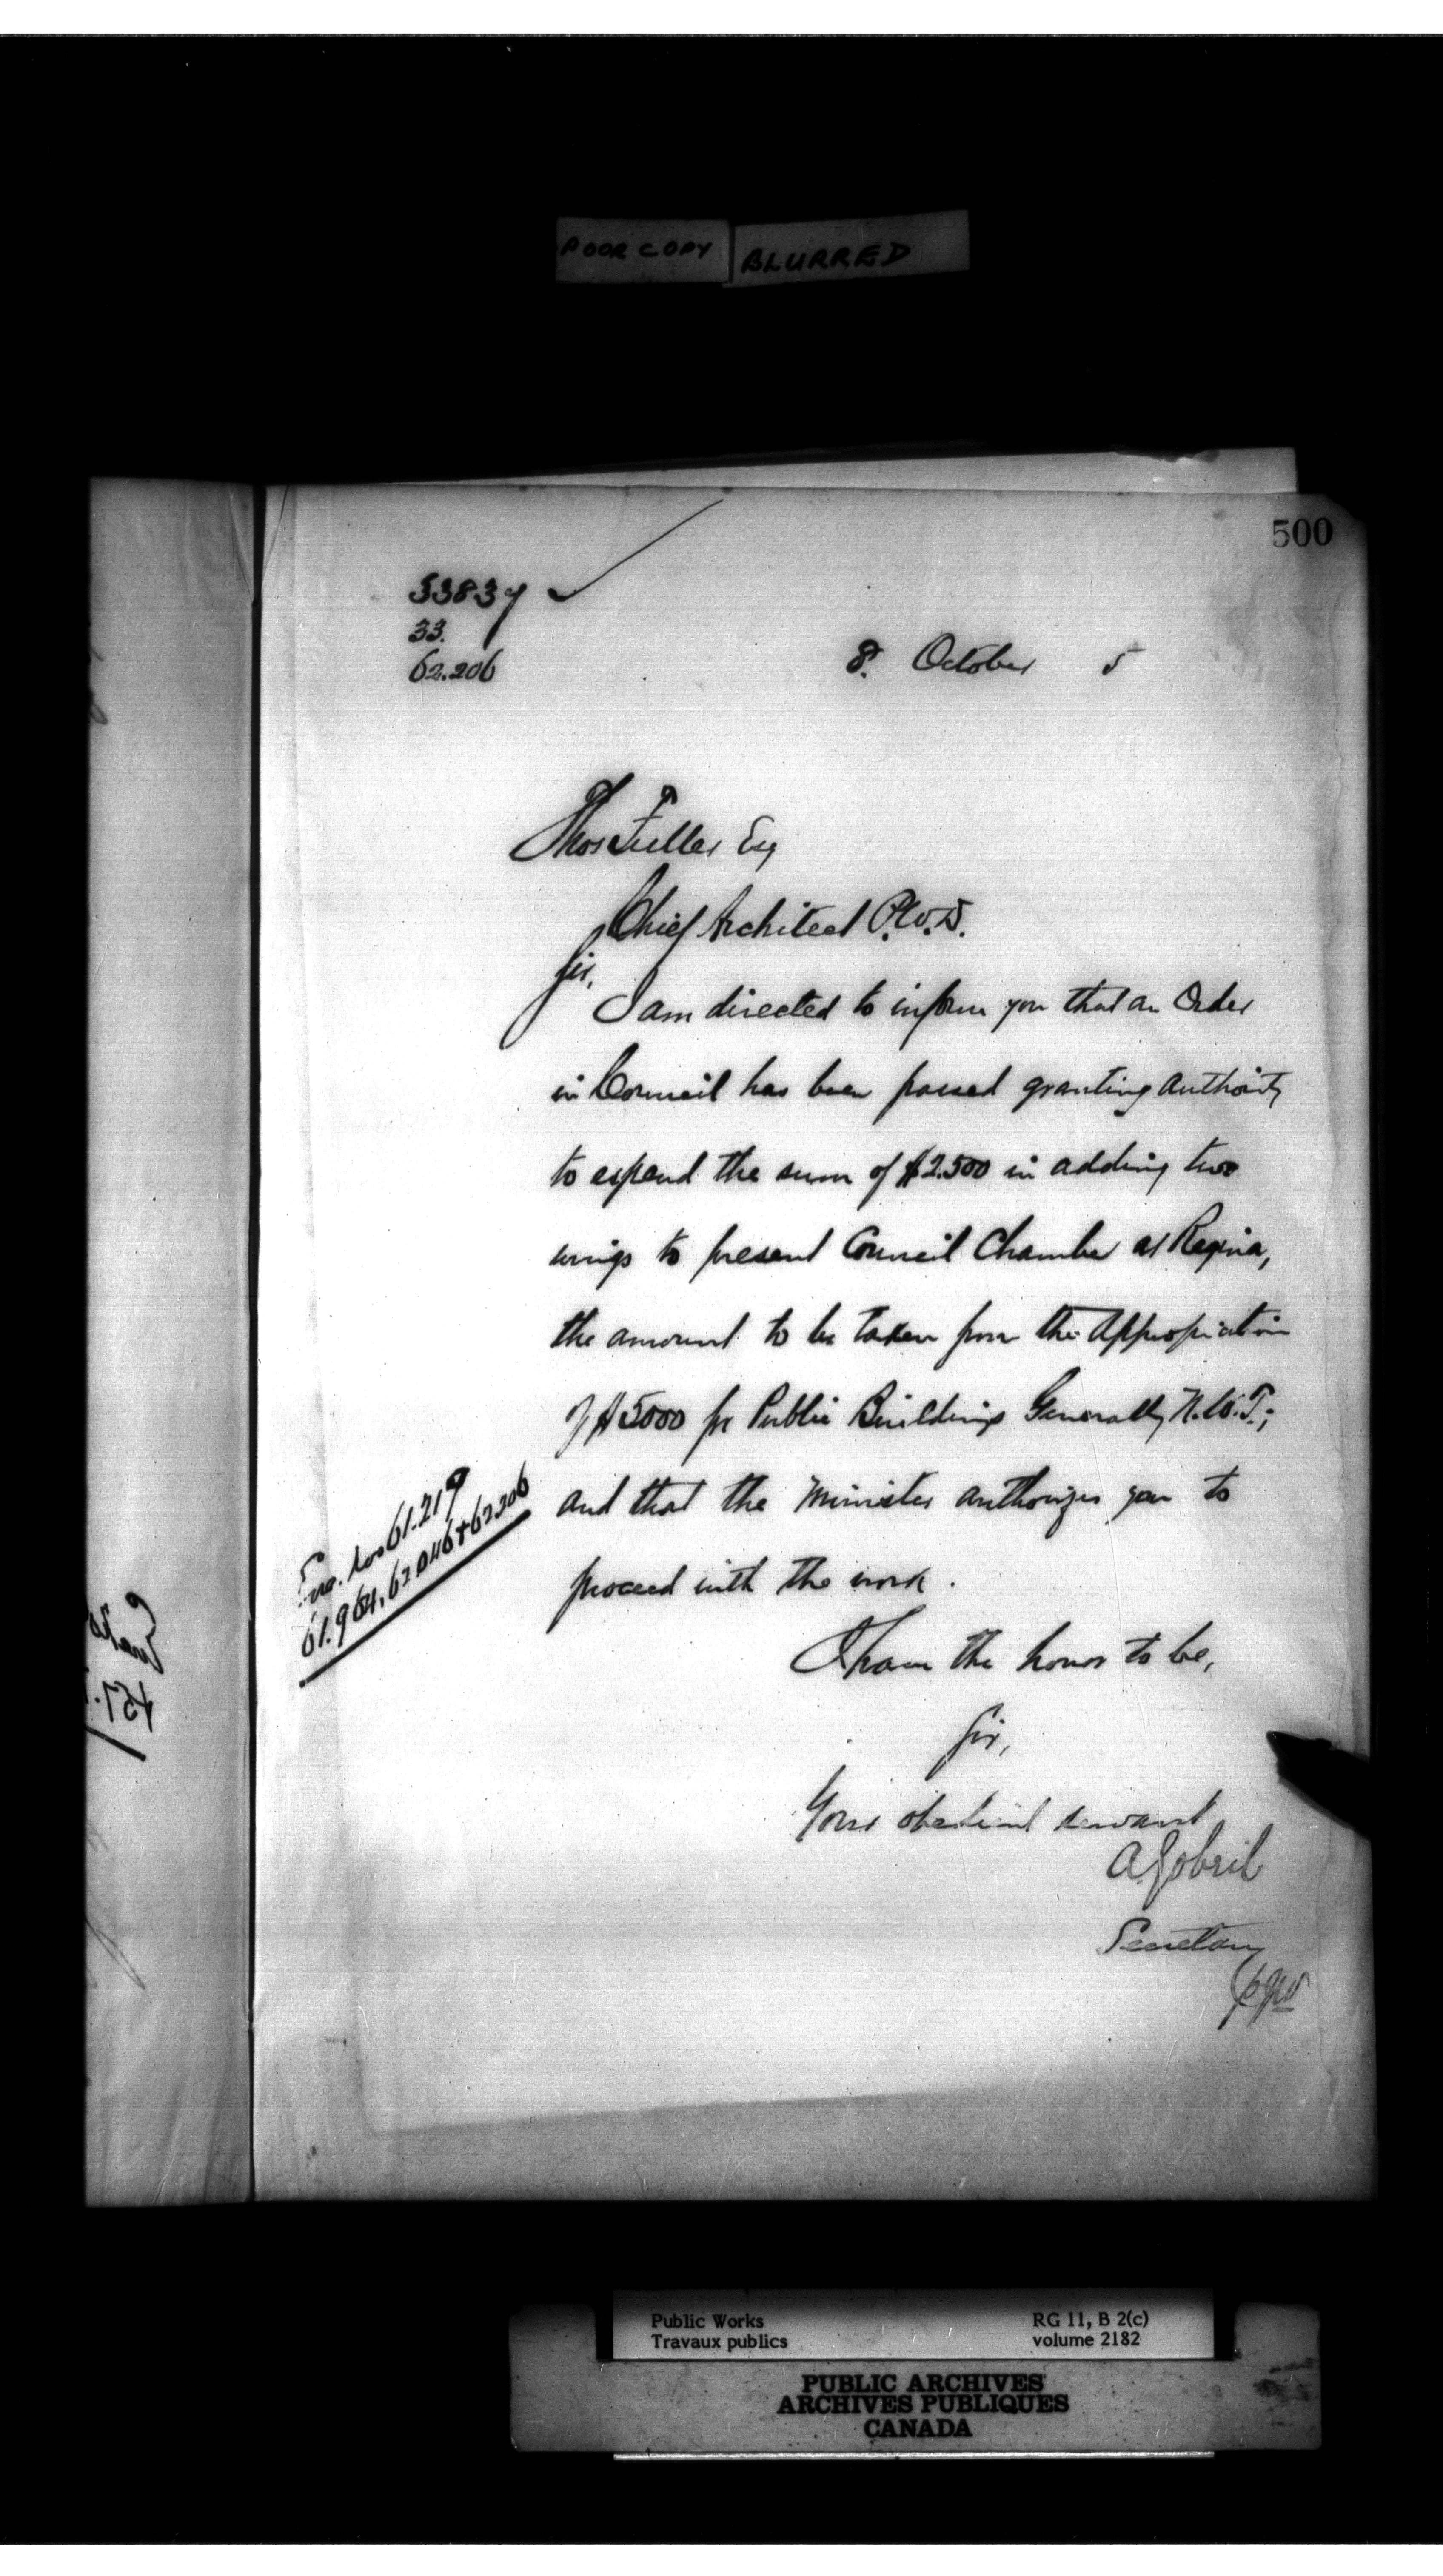 POOR COPY BLURRED
500
33.
62.206
8. October 5
Thos Fuller Esq
Chief Architect P.W.D.
Sir,
I am directed to inform you that an Order
in Council has been passed granting authority
to expend the sum of $2.500 in adding two
wings to present Council Chamber at Regina,
the amount to be taken from the Appropriation
of $5000 for Public Buildings Generally N.W.T.;
and that the Minister authorizes you to
proceed with the work.
61.219
61.964, 62046 + 62206
I have the honor to be,
Sir,
Your obedient servant
A Gobeil
Secretary
Public Works RG 11, B 2(c)
Travaux publics volume 2182
PUBLIC ARCHIVES
ARCHIVES PUBLIQUES
CANADA